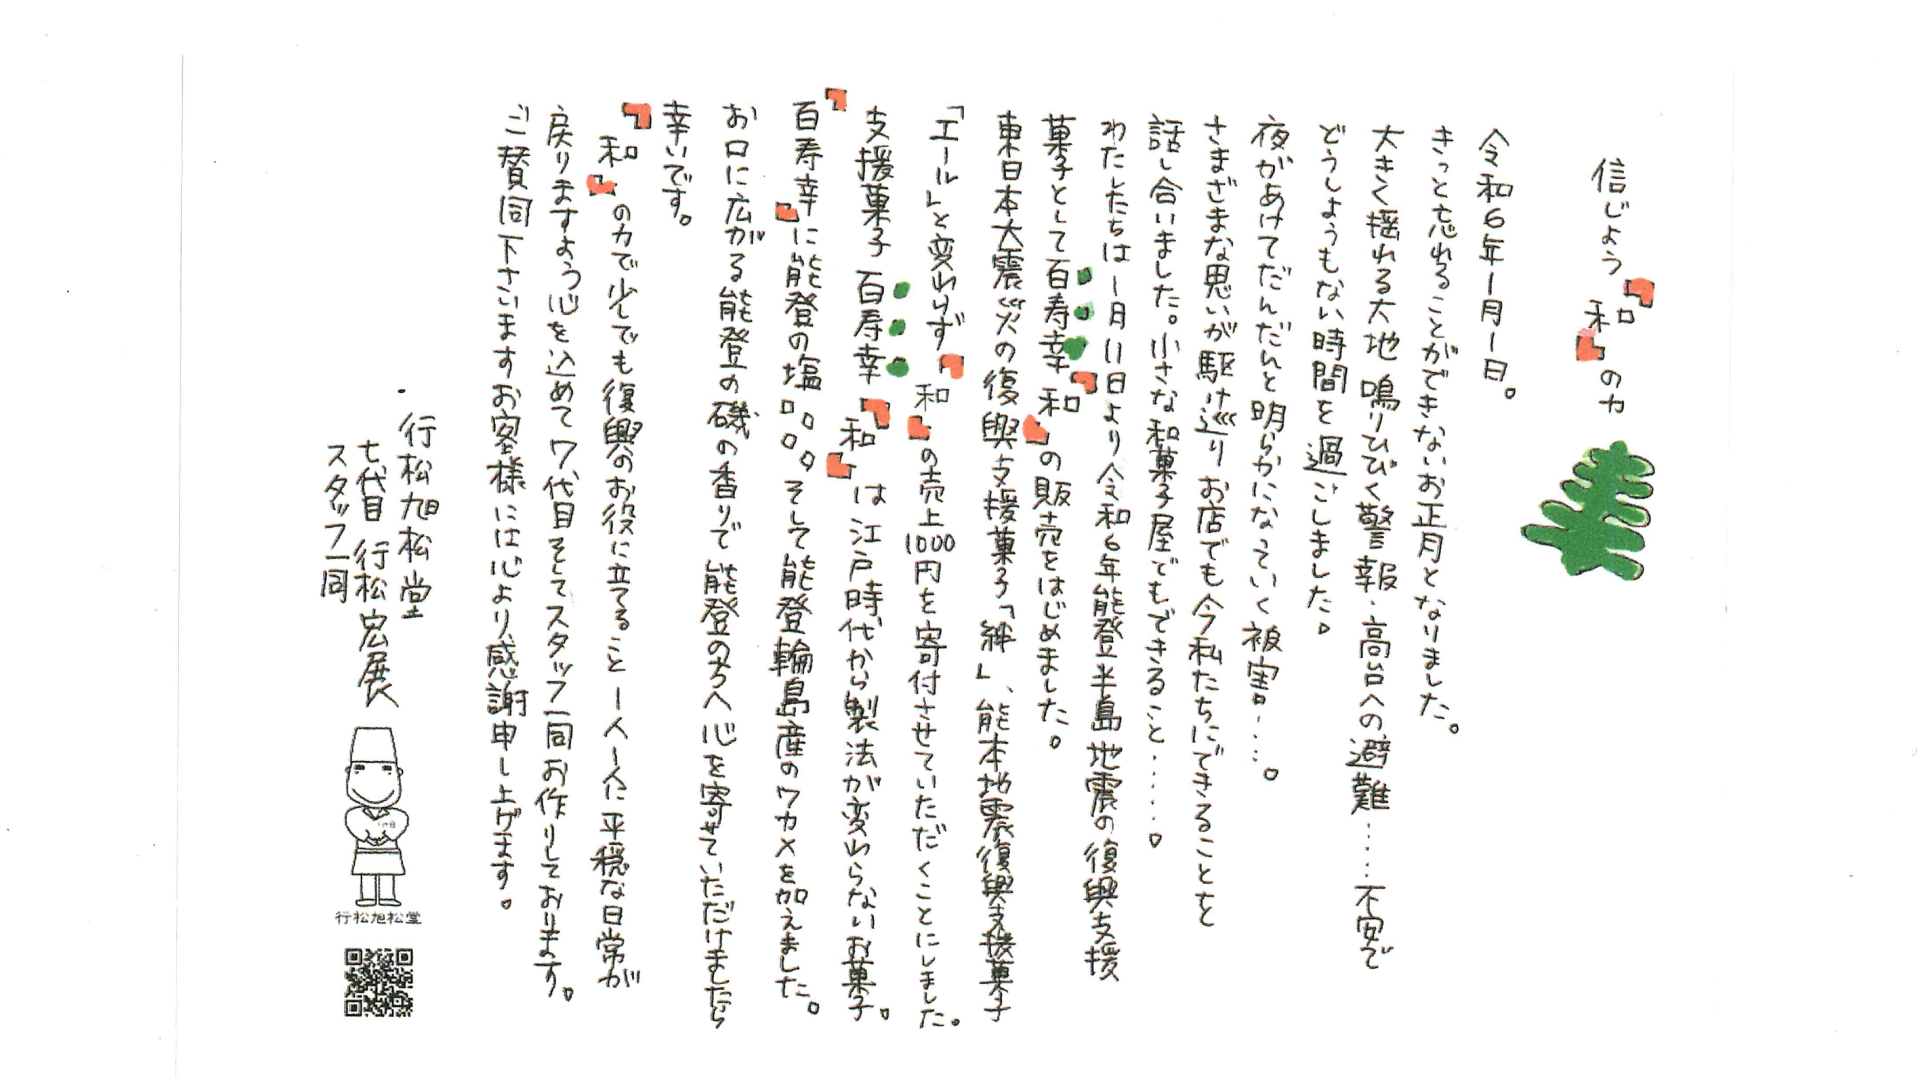 信じよう『和』の力
令和6年1月1日。
きっと忘れることができないお正月となりました。
大きく揺れる大地 鳴りひびく警報・高台への避難……不安で
どうしようもない時間を過ごしました。
夜があけてだんだんと明らかになっていく被害……。
さまざまな思いが駆け巡り お店でも今私たちにできることを
話し合いました。小さな和菓子屋でもできること……。
わたしたちは1月11日より令和6年能登半島地震の復興支援
菓子として百寿幸『和』の販売をはじめました。
東日本大震災の復興支援菓子「絆」、熊本地震復興支援菓子
「エール」と変わらず『和』の売上1000円を寄付させていただくことにしました。
支援菓子 百寿幸『和』は江戸時代から製法が変わらないお菓子。
『百寿幸』に能登の塩。。。そして能登輪島産のワカメを加えました。
お口に広がる能登の磯の香りで能登の方へ心を寄せていただけましたら
幸いです。
『和』の力で少しでも復興のお役に立てること 1人1人に平穏な日常が
戻りますよう心を込めて7代目そしてスタッフ一同お作りしております。
ご賛同下さいますお客様には心より感謝申し上げます。
行松旭松堂
七代目 行松宏展
スタッフ一同
行松旭松堂